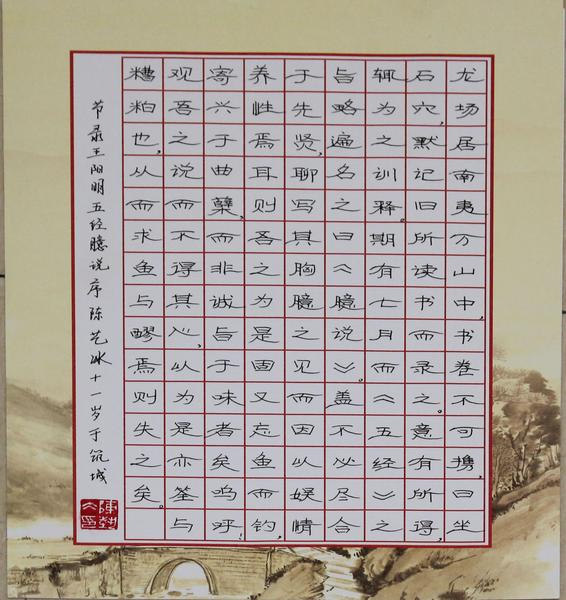 龙场居南夷万山中,书卷不可携,日坐
石穴,默记旧所读书而录之。意有所得,
辄为之训释。期有七月而《五经》之
旨略遍名之曰《臆说》。盖不必尽合
于先贤,聊写其胸臆之见而因以娱情
养性焉耳则吾之为是固又忘鱼而钓,
寄兴于曲糵,而非诚旨于味者矣呜呼!
观吾之说而不得其心,以为是亦筌与
糟粕也,从而求鱼与醪焉则失之矣。
节录王阳明五经臆说序陈艺冰十一岁于筑城